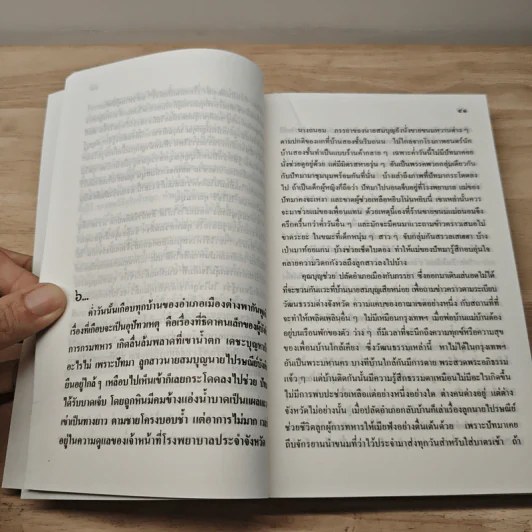 ๖...
ค่ำวันนั้นเกือบทุกบ้านของอำเภอเมืองต่างพากันพูด
เรื่องที่เกือบจะเป็นอุปัทวเหตุ คือเรื่องที่ธิดาคนเล็กของผู้บัง
การกรมทหาร เกิดลื่นล้มพลาดที่เขาน้ำตก เดชะบุญหาได้
อะไรไม่ เพราะปัทมา ลูกสาวนายสมบุญนายไปรษณีย์บังเอิญ
ยืนอยู่ใกล้ ๆ เหลือบไปเห็นเข้าก็เลยกระโดดลงไปช่วย ปัทมา
ได้รับบาดเจ็บ โดยถูกหินมีคมข้างแอ่งน้ำบาดเป็นแผลและ
เข่าเป็นทางยาว ตามชายโครงบอบช้ำ แต่อาการไม่มาก
อยู่ในความดูแลของเจ้าหน้าที่โรงพยาบาลประจำจังหวัด
๕๑
นางถนอม ภรรยาของนายสมบุญยังนั่งขายขนมหวานต่าง ๆ
ตามปกติของแกที่บ้านสองชั้นริมถนน ไม่ไกลจากโรงภาพยนตร์นัก
บ้านสองชั้นทำเป็นแบบร้านค้ากลาย ๆ เฉพาะค่ำวันนี้ไม่มีปัทมาคอย
นั่งช่วยดูอยู่ด้วย แต่มีมิตรสหายรุ่น ๆ อันเป็นพรรคพวกกลุ่มเดียวกัน
กับปัทมามาชุมนุมพร้อมกันที่นั่น บ้างเล่าถึงภาพที่ปัทมากระโดดลง
ไป ถ้าเป็นเด็กผู้หญิงก็ถือว่า ปัทมาไปนอนเจ็บอยู่ที่โรงพยาบาล แม่ของ
ปัทมาคงจะเหงา และขาดผู้ช่วยเหลือหยิบโน่นหยิบนี่ เขาเหล่านั้นควร
จะมาช่วยแม่ของเพื่อนแทน ด้วยเหตุนี้เองที่ร้านขายขนมแม่ถนอมจึง
ครึกครื้นกว่าค่ำวันอื่น ๆ และมักจะมีคนมาแวะถามข่าวคราวเสมอไม่
ขาดระยะ ในขณะที่เด็กหนุ่ม ๆ สาว ๆ จับกลุ่มกันสรวลเสเฮฮา บ้าง
เป่าเมาท์ออแกน บ้างช่วยเช็ดใบตอง ทำให้แม่ของปัทมารู้สึกอบอุ่นใจ
คลายความวิตกกังวลถึงลูกสาวลงไปบ้าง
คุณบุญช่วย ปลัดอำเภอเมืองกับภรรยา ซึ่งออกมาเดินเล่นอดไม่ได้
ที่จะชวนกันแวะที่บ้านนายสมบุญเสียหน่อย เพื่อถามข่าวคราวตามระเบียบ
วัฒนธรรมต่างจังหวัด ความแคบของอาณาเขตอย่างหนึ่ง กับสถานที่ที่
จะทำให้เพลิดเพลินอื่น ๆ ไม่มีเหมือนกรุงเทพฯ เมื่อพ่อบ้านแม่บ้านต้อง
อยู่บนเรือนพักของตัว ว่าง ๆ ก็มีเวลาที่จะนึกถึงความทุกข์หรือความสุข
ของเพื่อนบ้านใกล้เคียง ซึ่งวัฒนธรรมเหล่านี้ หาไม่ได้ในกรุงเทพฯ
อันเป็นพระมหานคร บางทีบ้านใกล้กันมีการตาย พระสวดพระอภิธรรม
แจ้ว ๆ แต่บ้านติดกันนั้นมีความรู้สึกธรรมดาเหมือนไม่มีอะไรเกิดขึ้น
ไม่มีการพบปะช่วยเหลือแต่อย่างหนึ่งอย่างใด ต่างคนต่างอยู่ แต่ต่าง
จังหวัดไม่อย่างนั้น เมื่อปลัดอำเภอกลับบ้านก็เล่าเรื่องลูกนายไปรษณีย์
ช่วยชีวิตลูกผู้การทหารให้เมียฟังอย่างตื่นเต้นด้วย เพราะปัทมาเคย
ถีบจักรยานนำขนมที่ว่าไว้ประจำมาส่งทุกวันสำหรับใส่บาตรเช้า ถ้า